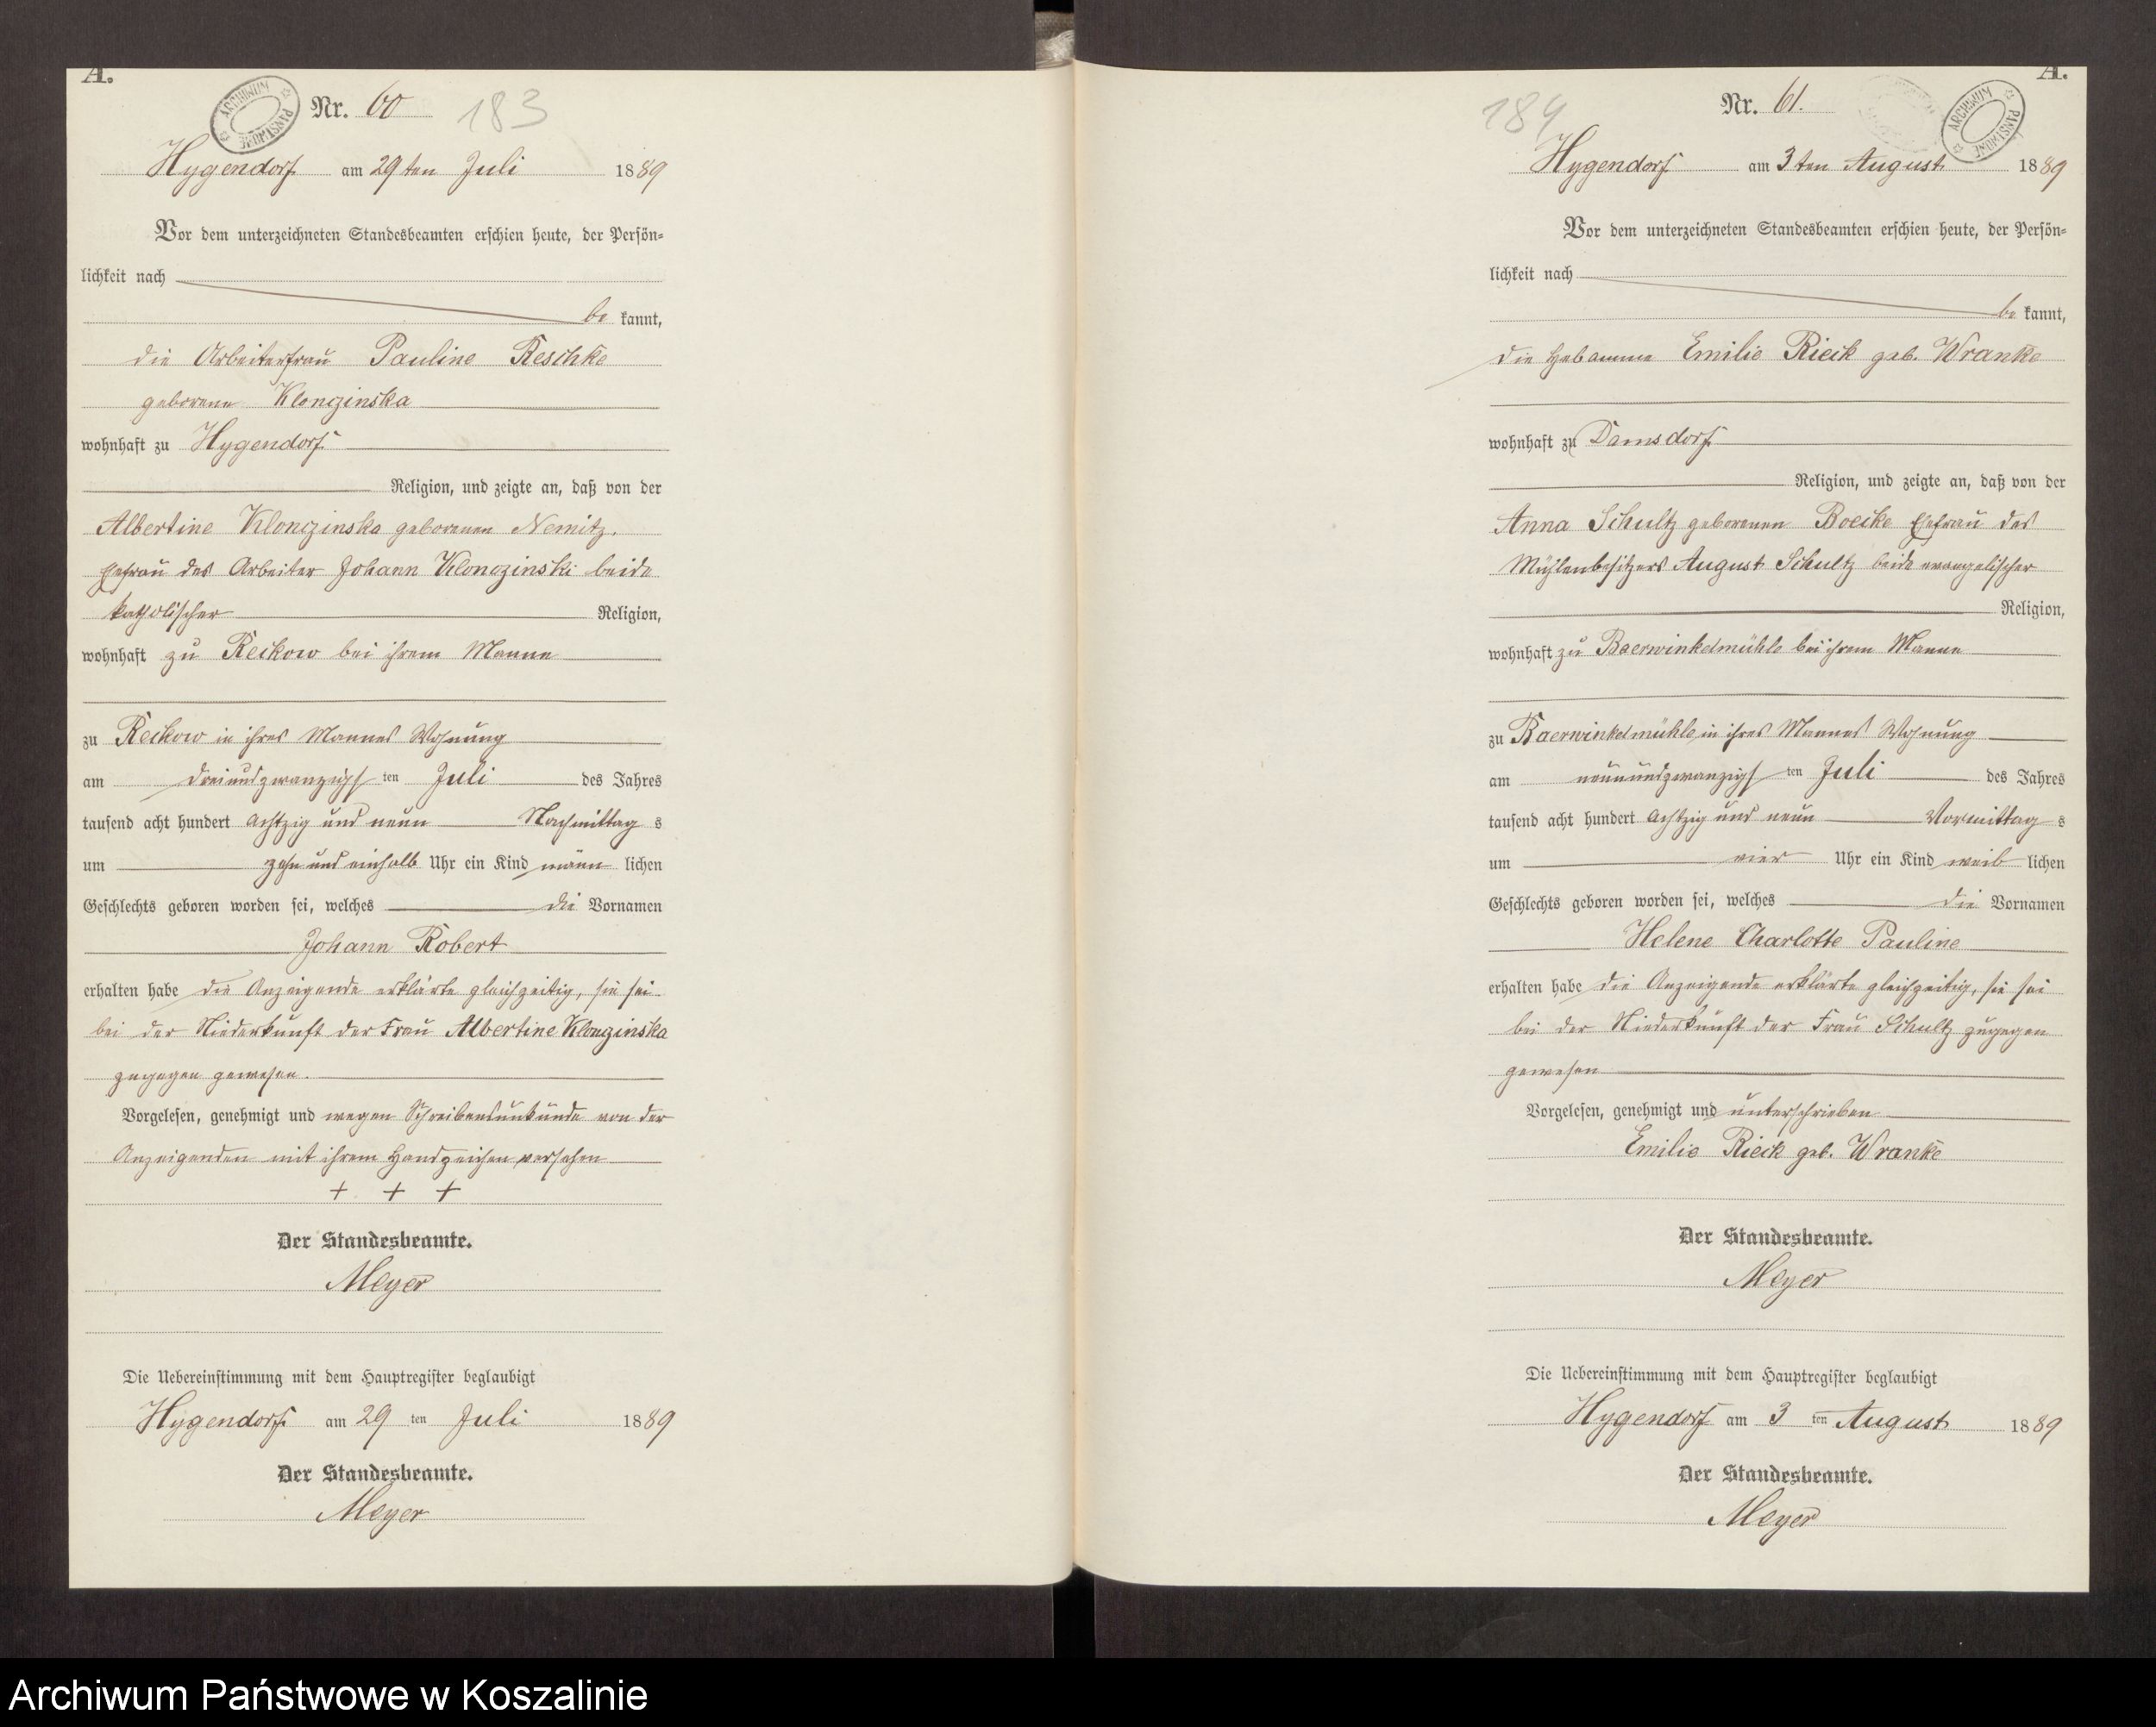 A.
Nr. 60 183
ARCHIWUM PAŃSTWOWE
Hygendorf am 29ten Juli 1889
Vor dem unterzeichneten Standesbeamten erschien heute, der Persön=
lichkeit nach
be kannt,
die Arbeiterfrau Pauline Reschke
geborene Klonczinska
wohnhaft zu Hygendorf
Religion, und zeigte an, daß von der
Albertine Klonczinska geborenen Nemitz,
Ehefrau des Arbeiter Johann Klonczinski beide
katholischer Religion,
wohnhaft zu Reckow bei ihrem Manne
zu Reckow in ihres Mannes Wohnung
am dreiundzwanzigs ten Juli des Jahres
tausend acht hundert achtzig und neun Nachmittag s
um zehn und einhalb Uhr ein Kind männ lichen
Geschlechts geboren worden sei, welches die Vornamen
Johann Robert
erhalten habe die Anzeigende erklärte gleichzeitig, sie sei
bei der Niederkunft der Frau Albertine Klonczinska
zugegen gewesen.
Vorgelesen, genehmigt und wegen Schreibensunkunde von der
Anzeigenden mit ihrem Handzeichen versehen
+ + +
Der Standesbeamte.
Meyer
Die Uebereinstimmung mit dem Hauptregister beglaubigt
Hygendorf am 29 ten Juli 1889
Der Standesbeamte.
Meyer
A.
184 Nr. 61.
ARCHIWUM PAŃSTWOWE
Hygendorf am 3ten August 1889
Vor dem unterzeichneten Standesbeamten erschien heute, der Persön=
lichkeit nach
be kannt,
die Hebamme Emilie Rieck geb. Wranke
wohnhaft zu Damsdorf
Religion, und zeigte an, daß von der
Anna Schultz geborenen Boecke Ehefrau des
Mühlenbesitzers August Schultz beide evangelischer
Religion,
wohnhaft zu Baerwinkelmühle bei ihrem Manne
zu Baerwinkelmühle in ihres Mannes Wohnung
am neunundzwanzigs ten Juli des Jahres
tausend acht hundert achtzig und neun Vormittag s
um vier Uhr ein Kind weib lichen
Geschlechts geboren worden sei, welches die Vornamen
Helene Charlotte Pauline
erhalten habe die Anzeigende erklärte gleichzeitig, sie sei
bei der Niederkunft der Frau Schultz zugegen
gewesen
Vorgelesen, genehmigt und unterschrieben
Emilie Rieck geb. Wranke
Der Standesbeamte.
Meyer
Die Uebereinstimmung mit dem Hauptregister beglaubigt
Hygendorf am 3 ten August 1889
Der Standesbeamte.
Meyer
Archiwum Państwowe w Koszalinie